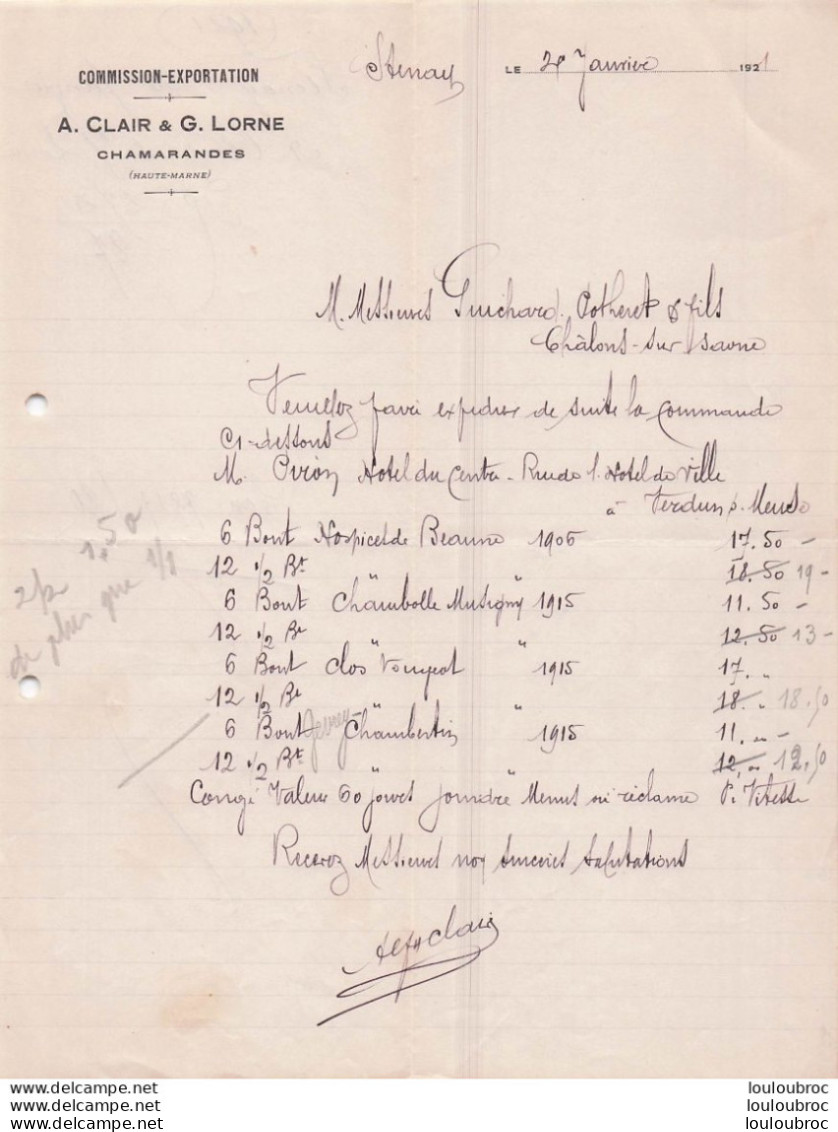 COMMISSION-EXPORTATION
A. CLAIR & G. LORNE
CHAMARANDES
(HAUTE-MARNE)
Stenay LE Janvier 1921
M. Messieurs Guichard Potheret & fils
Châlons-sur Saone
Veuillez faire expedier de suite la commande
ci-dessous
M. Hotel du Centre - Rue de l'Hotel de Ville
à Verdun s. Meuse
6 Bout Hospice de Beaune 1906 17.50 -
12 1/2 Bt " " 18.50 19 -
6 Bout Chambolle Musigny 1915 11.50 -
12 1/2 Bt " " 12.50 13 -
6 Bout Clos Vougeot 1915 17. "
12 1/2 Bt " " 18. " 18.50
6 Bout Gevrey- Chambertin 1915 11. " -
12 1/2 Bt " " 12. " 12.50
Congé Valeur 60 jours joindre Menus ou réclame P. Vitesse
Recevez Messieurs nos sinceres salutations
Clair
1,50
de plus que 1/1
louloubroc
louloubroc
louloubroc
http://www.delcampe.net
http://www.delcampe.net
http://www.delcampe.net